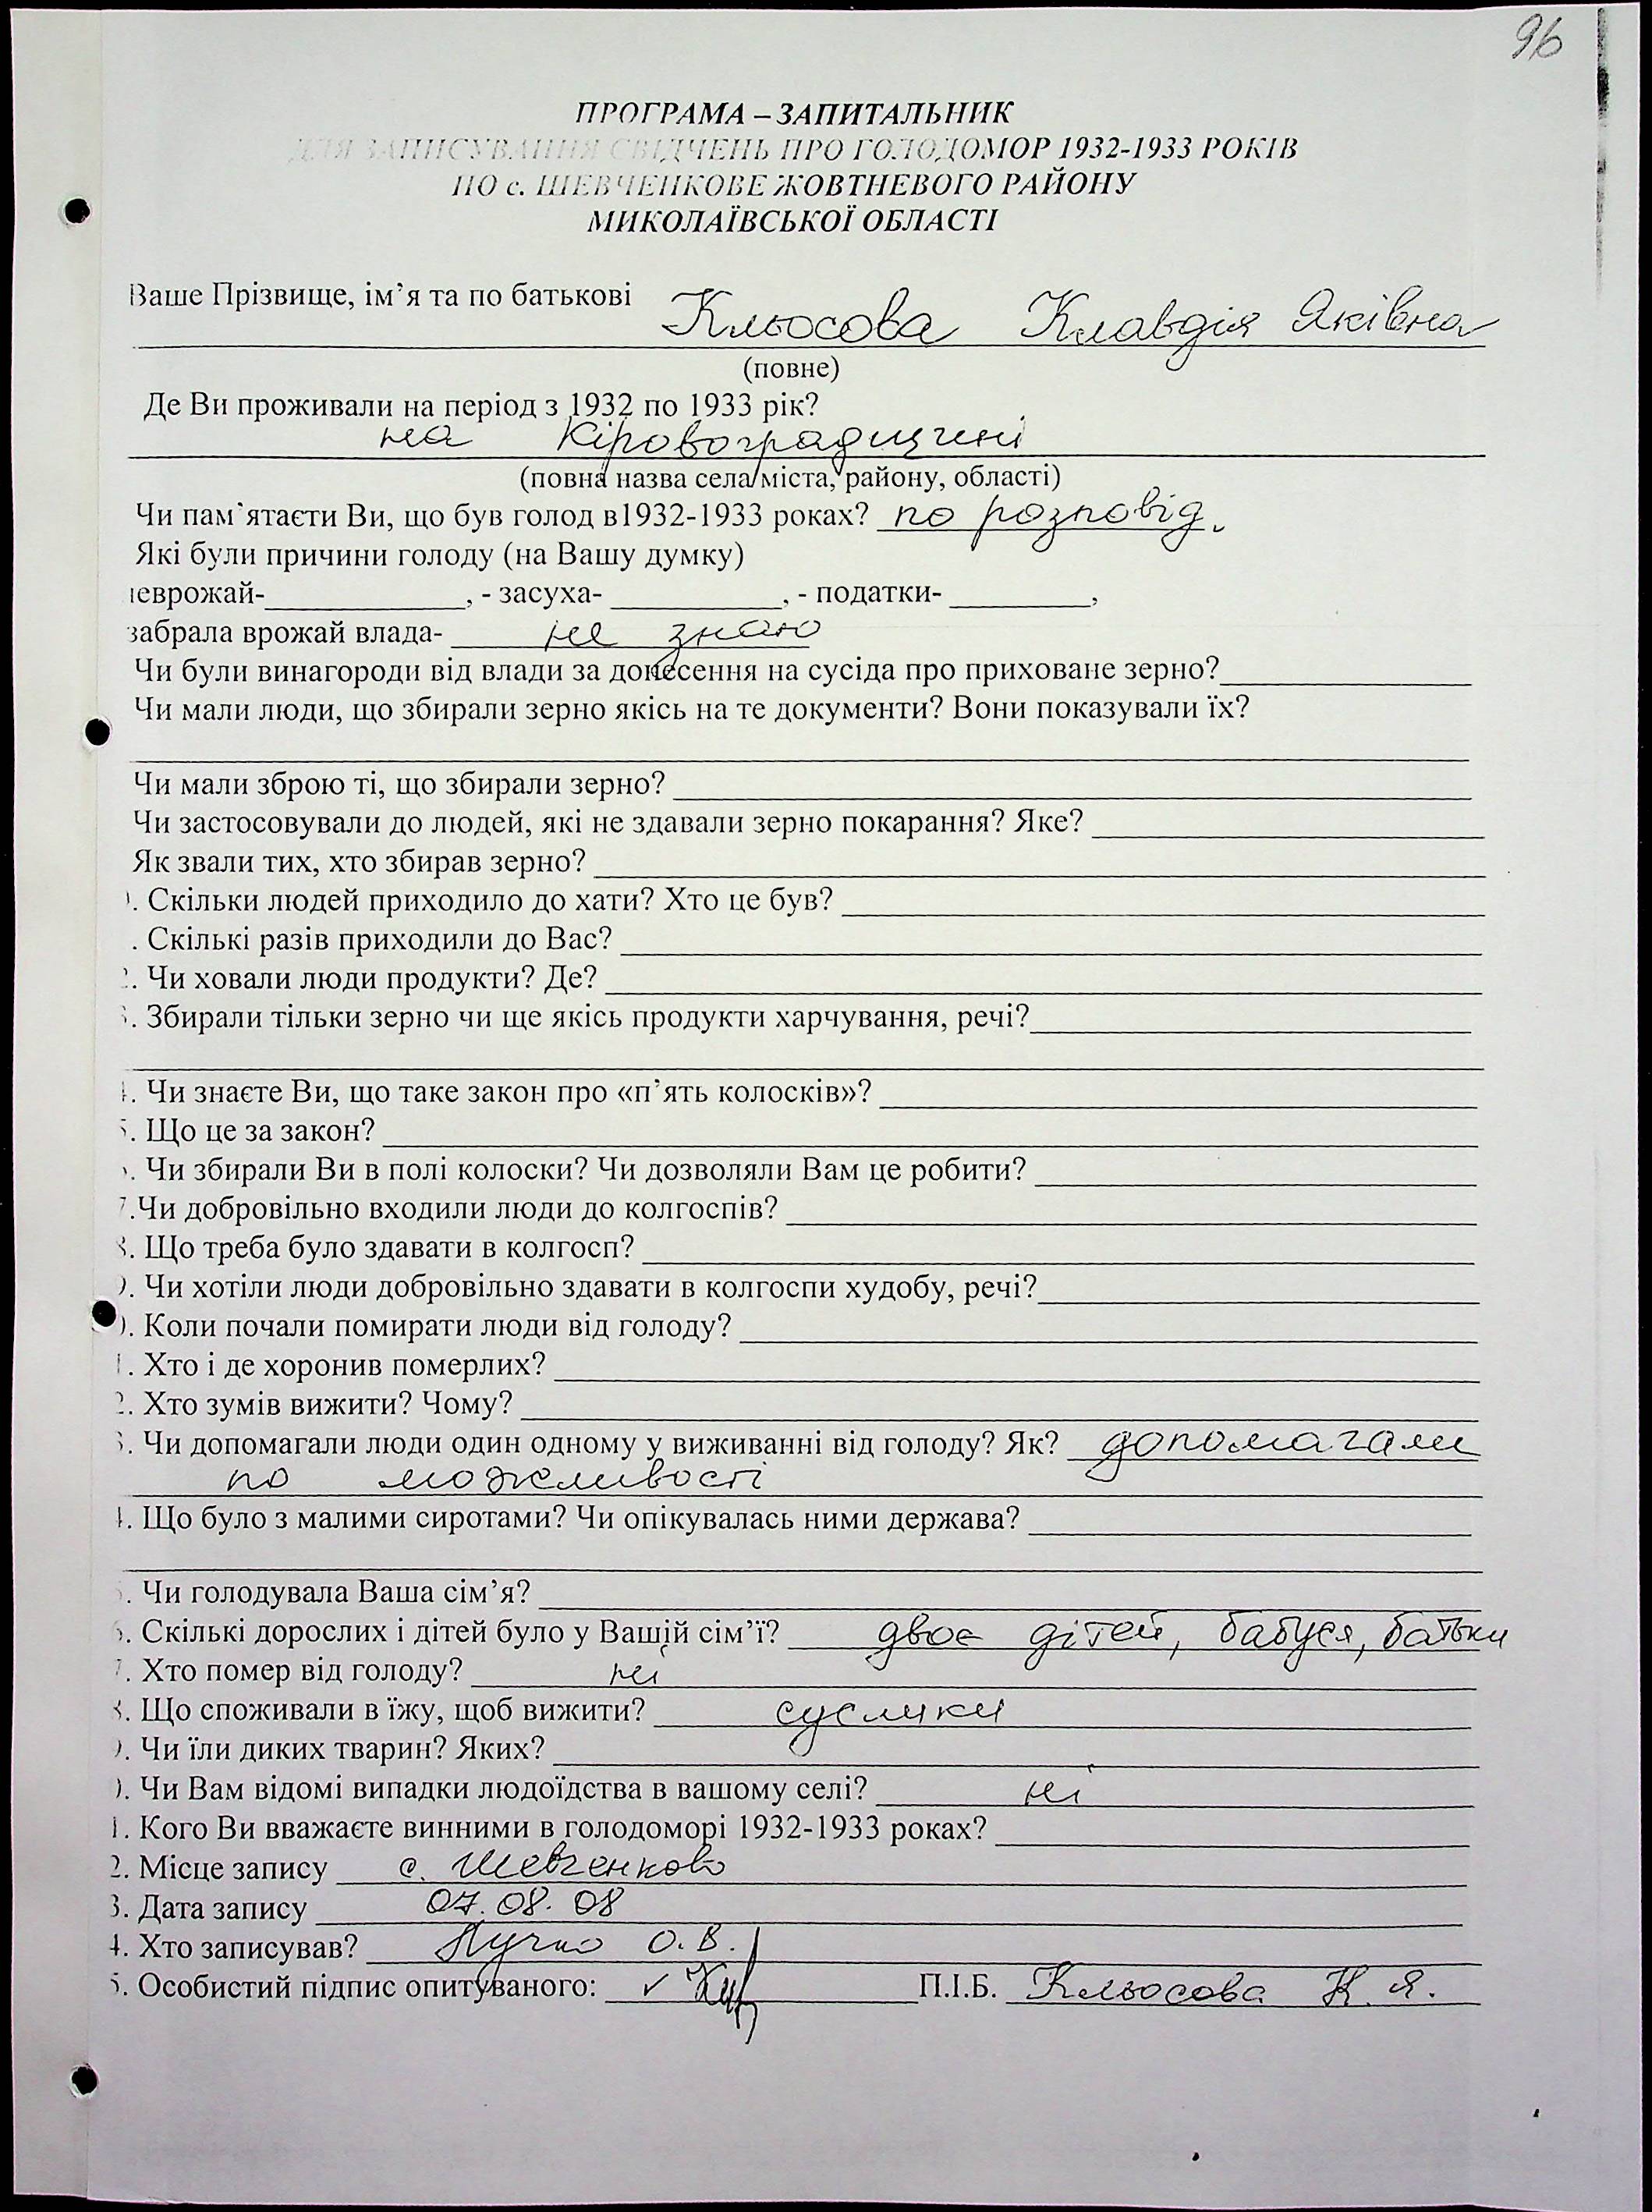 96
ПРОГРАМА – ЗАПИТАЛЬНИК
ДЛЯ ЗАПИСУВАННЯ СВІДЧЕНЬ ПРО ГОЛОДОМОР 1932-1933 РОКІВ
ПО с. ШЕВЧЕНКОВЕ ЖОВТНЕВОГО РАЙОНУ
МИКОЛАЇВСЬКОЇ ОБЛАСТІ
Ваше Прізвище, ім’я та по батькові Кльосова Клавдія Яківна
(повне)
Де Ви проживали на період з 1932 по 1933 рік?
на Кіровоградщині
(повна назва села/міста, району, області)
Чи пам’ятаєти Ви, що був голод в1932-1933 роках? по розповід.
Які були причини голоду (на Вашу думку)
неврожай-____________, - засуха- ___________, - податки- _________,
забрала врожай влада- не знаю
Чи були винагороди від влади за донесення на сусіда про приховане зерно?
Чи мали люди, що збирали зерно якісь на те документи? Вони показували їх?
Чи мали зброю ті, що збирали зерно?
Чи застосовували до людей, які не здавали зерно покарання? Яке?
Як звали тих, хто збирав зерно?
. Скільки людей приходило до хати? Хто це був?
. Скількі разів приходили до Вас?
2. Чи ховали люди продукти? Де?
3. Збирали тільки зерно чи ще якісь продукти харчування, речі?
4. Чи знаєте Ви, що таке закон про «п’ять колосків»?
5. Що це за закон?
. Чи збирали Ви в полі колоски? Чи дозволяли Вам це робити?
7.Чи добровільно входили люди до колгоспів?
8. Що треба було здавати в колгосп?
9. Чи хотіли люди добровільно здавати в колгоспи худобу, речі?
0. Коли почали помирати люди від голоду?
1. Хто і де хоронив померлих?
2. Хто зумів вижити? Чому?
3. Чи допомагали люди один одному у виживанні від голоду? Як? допомагали
по можливості
4. Що було з малими сиротами? Чи опікувалась ними держава?
5. Чи голодувала Ваша сім’я?
6. Скількі дорослих і дітей було у Вашій сім’ї? двоє дітей, бабуся, батьки
7. Хто помер від голоду? ні
8. Що споживали в їжу, щоб вижити? суслики
9. Чи їли диких тварин? Яких?
0. Чи Вам відомі випадки людоїдства в вашому селі? ні
1. Кого Ви вважаєте винними в голодоморі 1932-1933 роках?
2. Місце запису с. Шевченково
3. Дата запису 07.08.08
4. Хто записував? Лучко О.В.
5. Особистий підпис опитуваного: П.І.Б. Кльосова К.Я.